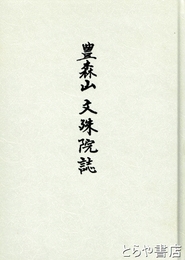 豊森山 文殊院誌
とらや書店